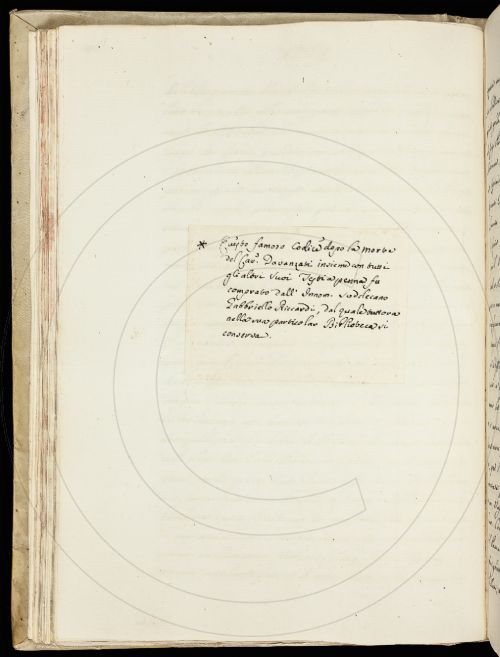 * Questo famoso Codice dopo la morte
del Cav.e Davanzati insieme con tutti
gli altri suoi Testi a penna fu
comprato dall' Innom. Sodelecano
Gabbriello Riccardi, dal quale tuttora
nella sua particolar Bibliobeca si
conserva.